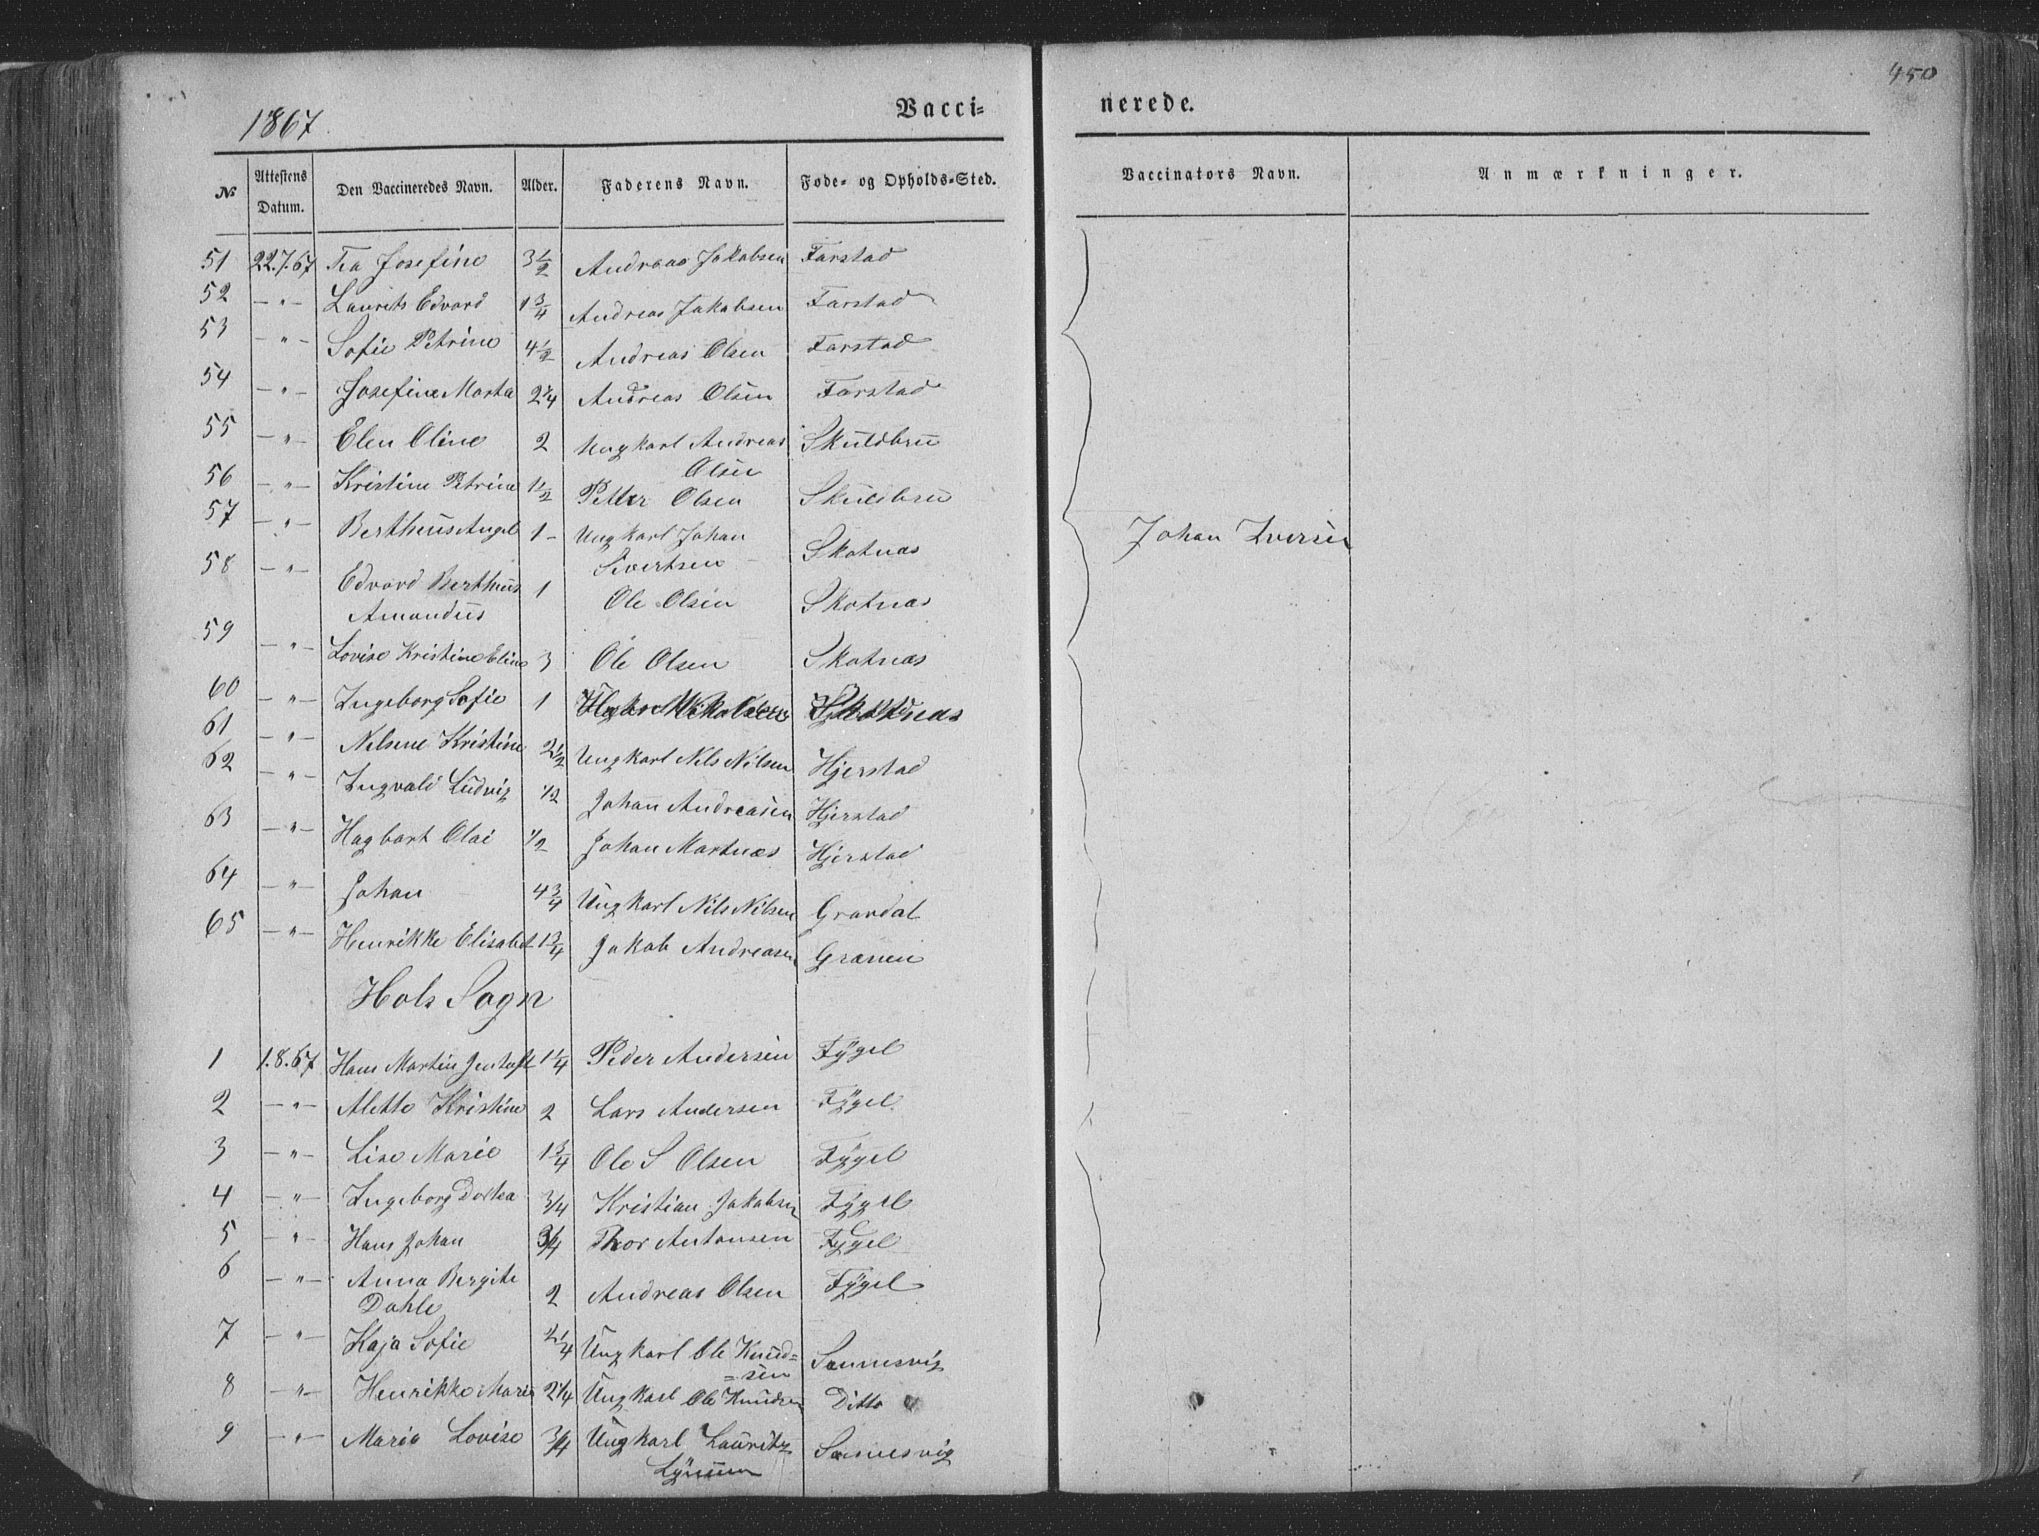 450
1867.
Vacci= nerede.
№ Attestens Datum. Den Vaccineredes Navn. Alder. Faderens Navn. Føde- og Opholds-Sted. Vaccinators Navn. Anmærkninger.
51 22.7.67 Tea Josefine 3 1/2 Andreas Jakobsen Farstad
52 -"- Laurits Edvard 1 3/4 Andreas Jakobsen Farstad
53 -"- Sofie Petrine 4 1/2 Andreas Olsen Farstad
54 -"- Josefine Marta 2 1/4 Andreas Olsen Farstad
55 -"- Elen Oline 2 Ungkarl Andreas Skuldbru
Olsen
56 -"- Kristine Petrine 1 1/2 Petter Olsen Skuldbru
57 -"- Bertheus Angel 1- Ungkarl Johan Skotnæs
Sivertsen
Johan Iversen
58 -"- Edvard Bertheus 1 Ole Olsen Skotnæs
Amandus
59 -"- Lovise Kristine Eline 3 Ole Olsen Skotnæs
60 -"- Ingeborg Sofie 1
61 -"- Nilsine Kristine 2 1/2 Ungkarl Nils Nilsen Hjerstad
62 -"- Ingvald Ludvig 1/2 Johan Andreasen Hjerstad
63 -"- Hagbart Olai 1/2 Johan Martnæs Hjerstad
64 -"- Johan 4 3/4 Ungkarl Nils Nilsen Gravdal
65 -"- Henrikke Elisabet 1 3/4 Jakob Andreasen
Hols Sogn
1 1.8.67 Hans Martin 1 1/4 Peder Andersen Fygel
2 -"- Alette Kristine 2 Lars Andersen Fygel
3 -"- Lise Marie 1 3/4 Ole S Olsen Fygel
4 -"- Ingeborg Dortea 3/4 Kristian Jakobsen Fygel
5 " Hans Johan 3/4 Thor Antonsen Fygel
6 -"- Anna Bergite 2 Andreas Olsen Fygel
Dahle
7 -"- Kaja Sofie 2 1/4 Ungkarl Ole Knud= Sannesvig
=sen
8 -"- Henrikke Marie 2 1/4 Ungkarl Ole Knudsen Ditto
9 -"- Maria Lovise 3/4 Ungkarl Lauritz Sannesvig